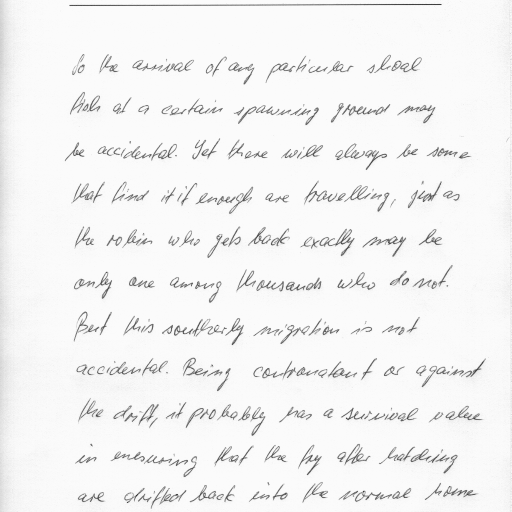 So the arrival of any particular shoal
fish at a certain spawning ground may
be accidental. Yet there will always be some
that find it if enough are travelling, just as
the robin who gets back exactly may be
only one among thousands who do not.
But this southerly migration is not
accidental. Being contranatant or against
the drift, it probably has a survival value
in ensuring that the fry after hatching
are drifted back into the normal home